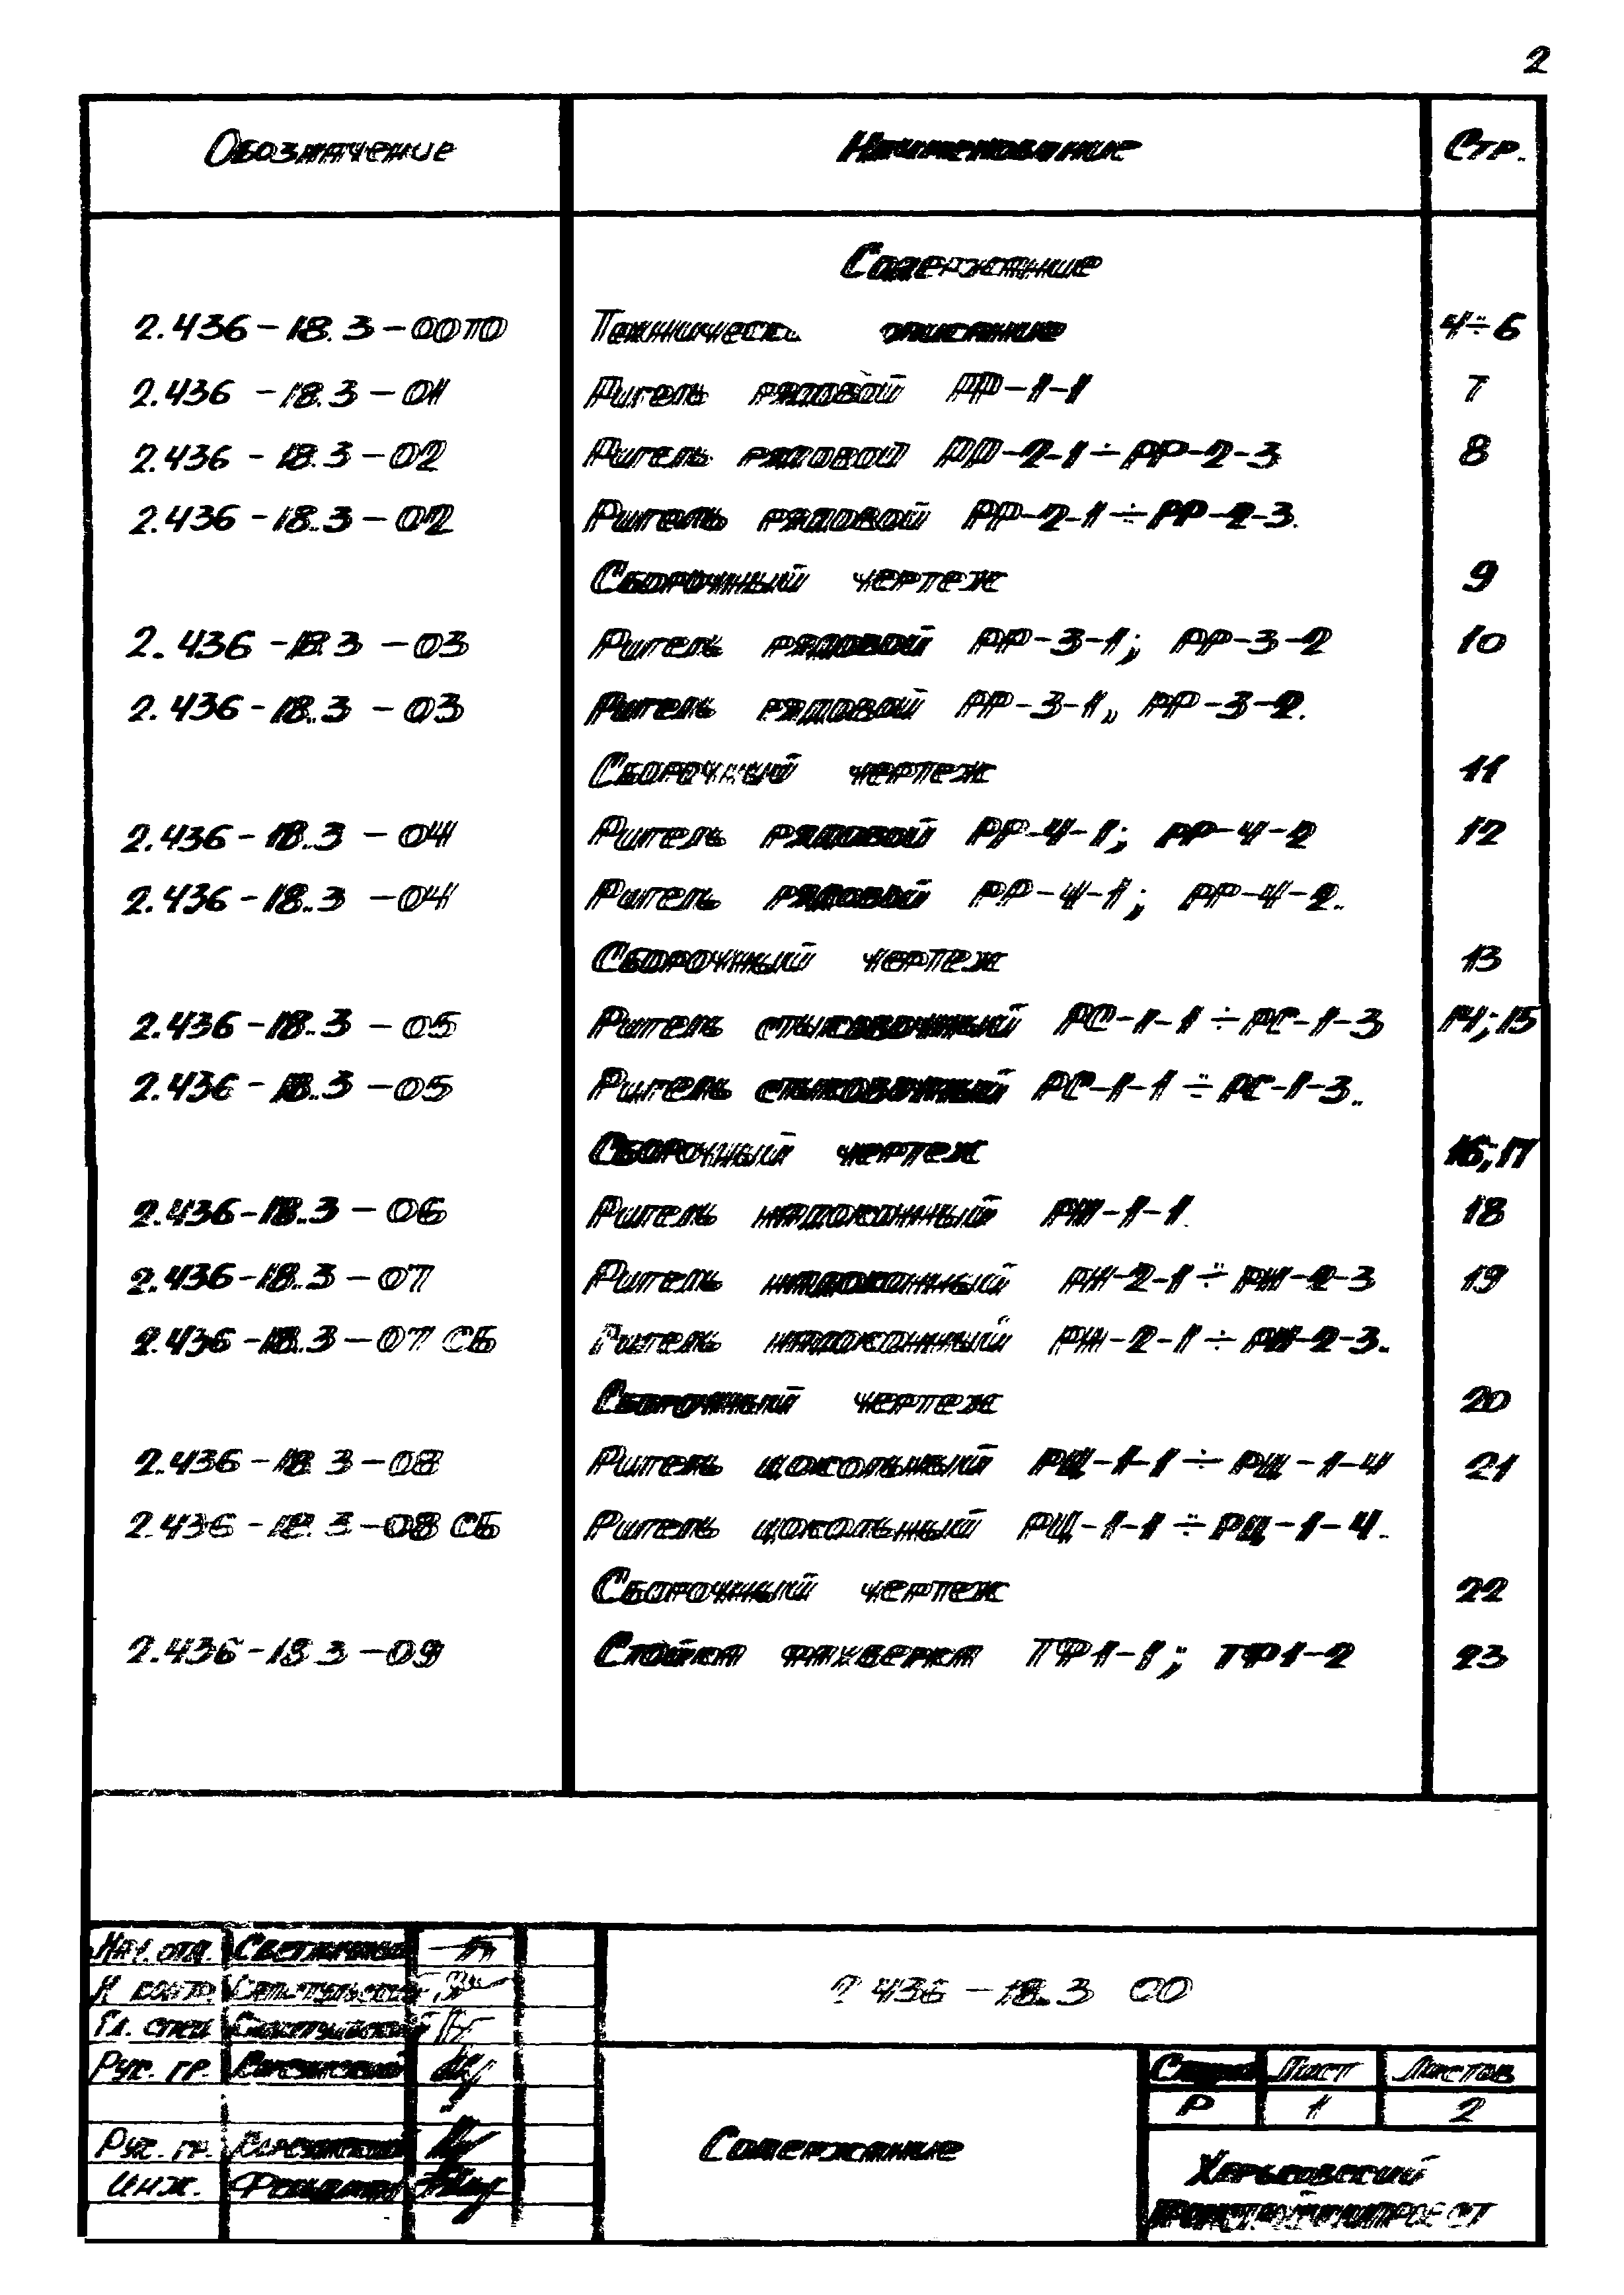 2
Обозначение Наименование Стр.
Содержание
2.436-18.3-00ТО Техническое описание 4÷6
2.436-18.3-01 Ригель рядовой РР-1-1 7
2.436-18.3-02 Ригель рядовой РР-2-1÷РР-2-3 8
2.436-18.3-02 Ригель рядовой РР-2-1÷РР-2-3.
Сборочный чертеж 9
2.436-18.3-03 Ригель рядовой РР-3-1; РР-3-2 10
2.436-18.3-03 Ригель рядовой РР-3-1, РР-3-2.
Сборочный чертеж 11
2.436-18.3-04 Ригель рядовой РР-4-1; РР-4-2 12
2.436-18.3-04 Ригель рядовой РР-4-1; РР-4-2.
Сборочный чертеж 13
2.436-18.3-05 Ригель стыковочный РС-1-1÷РС-1-3 14;15
2.436-18.3-05 Ригель стыковочный РС-1-1÷РС-1-3.
Сборочный чертеж 16;17
2.436-18.3-06 Ригель надоконный РН-1-1 18
2.436-18.3-07 Ригель надоконный РН-2-1÷РН-2-3 19
2.436-18.3-07 СБ Ригель надоконный РН-2-1÷РН-2-3.
Сборочный чертеж 20
2.436-18.3-08 Ригель цокольный РЦ-1-1÷РЦ-1-4 21
2.436-18.3-08 СБ Ригель цокольный РЦ-1-1÷РЦ-1-4.
Сборочный чертеж 22
2.436-18.3-09 Стойка фахверка ТФ1-1; ТФ1-2 23
Нач. отд.
Н. контр.
Гл. спец.
Рук. гр.
Рук. гр.
Инж.
2.436-18.3 00
Содержание
Стадия Лист Листов
Р 1 2
Харьковский
ПРОМСТРОЙНИИПРОЕКТ